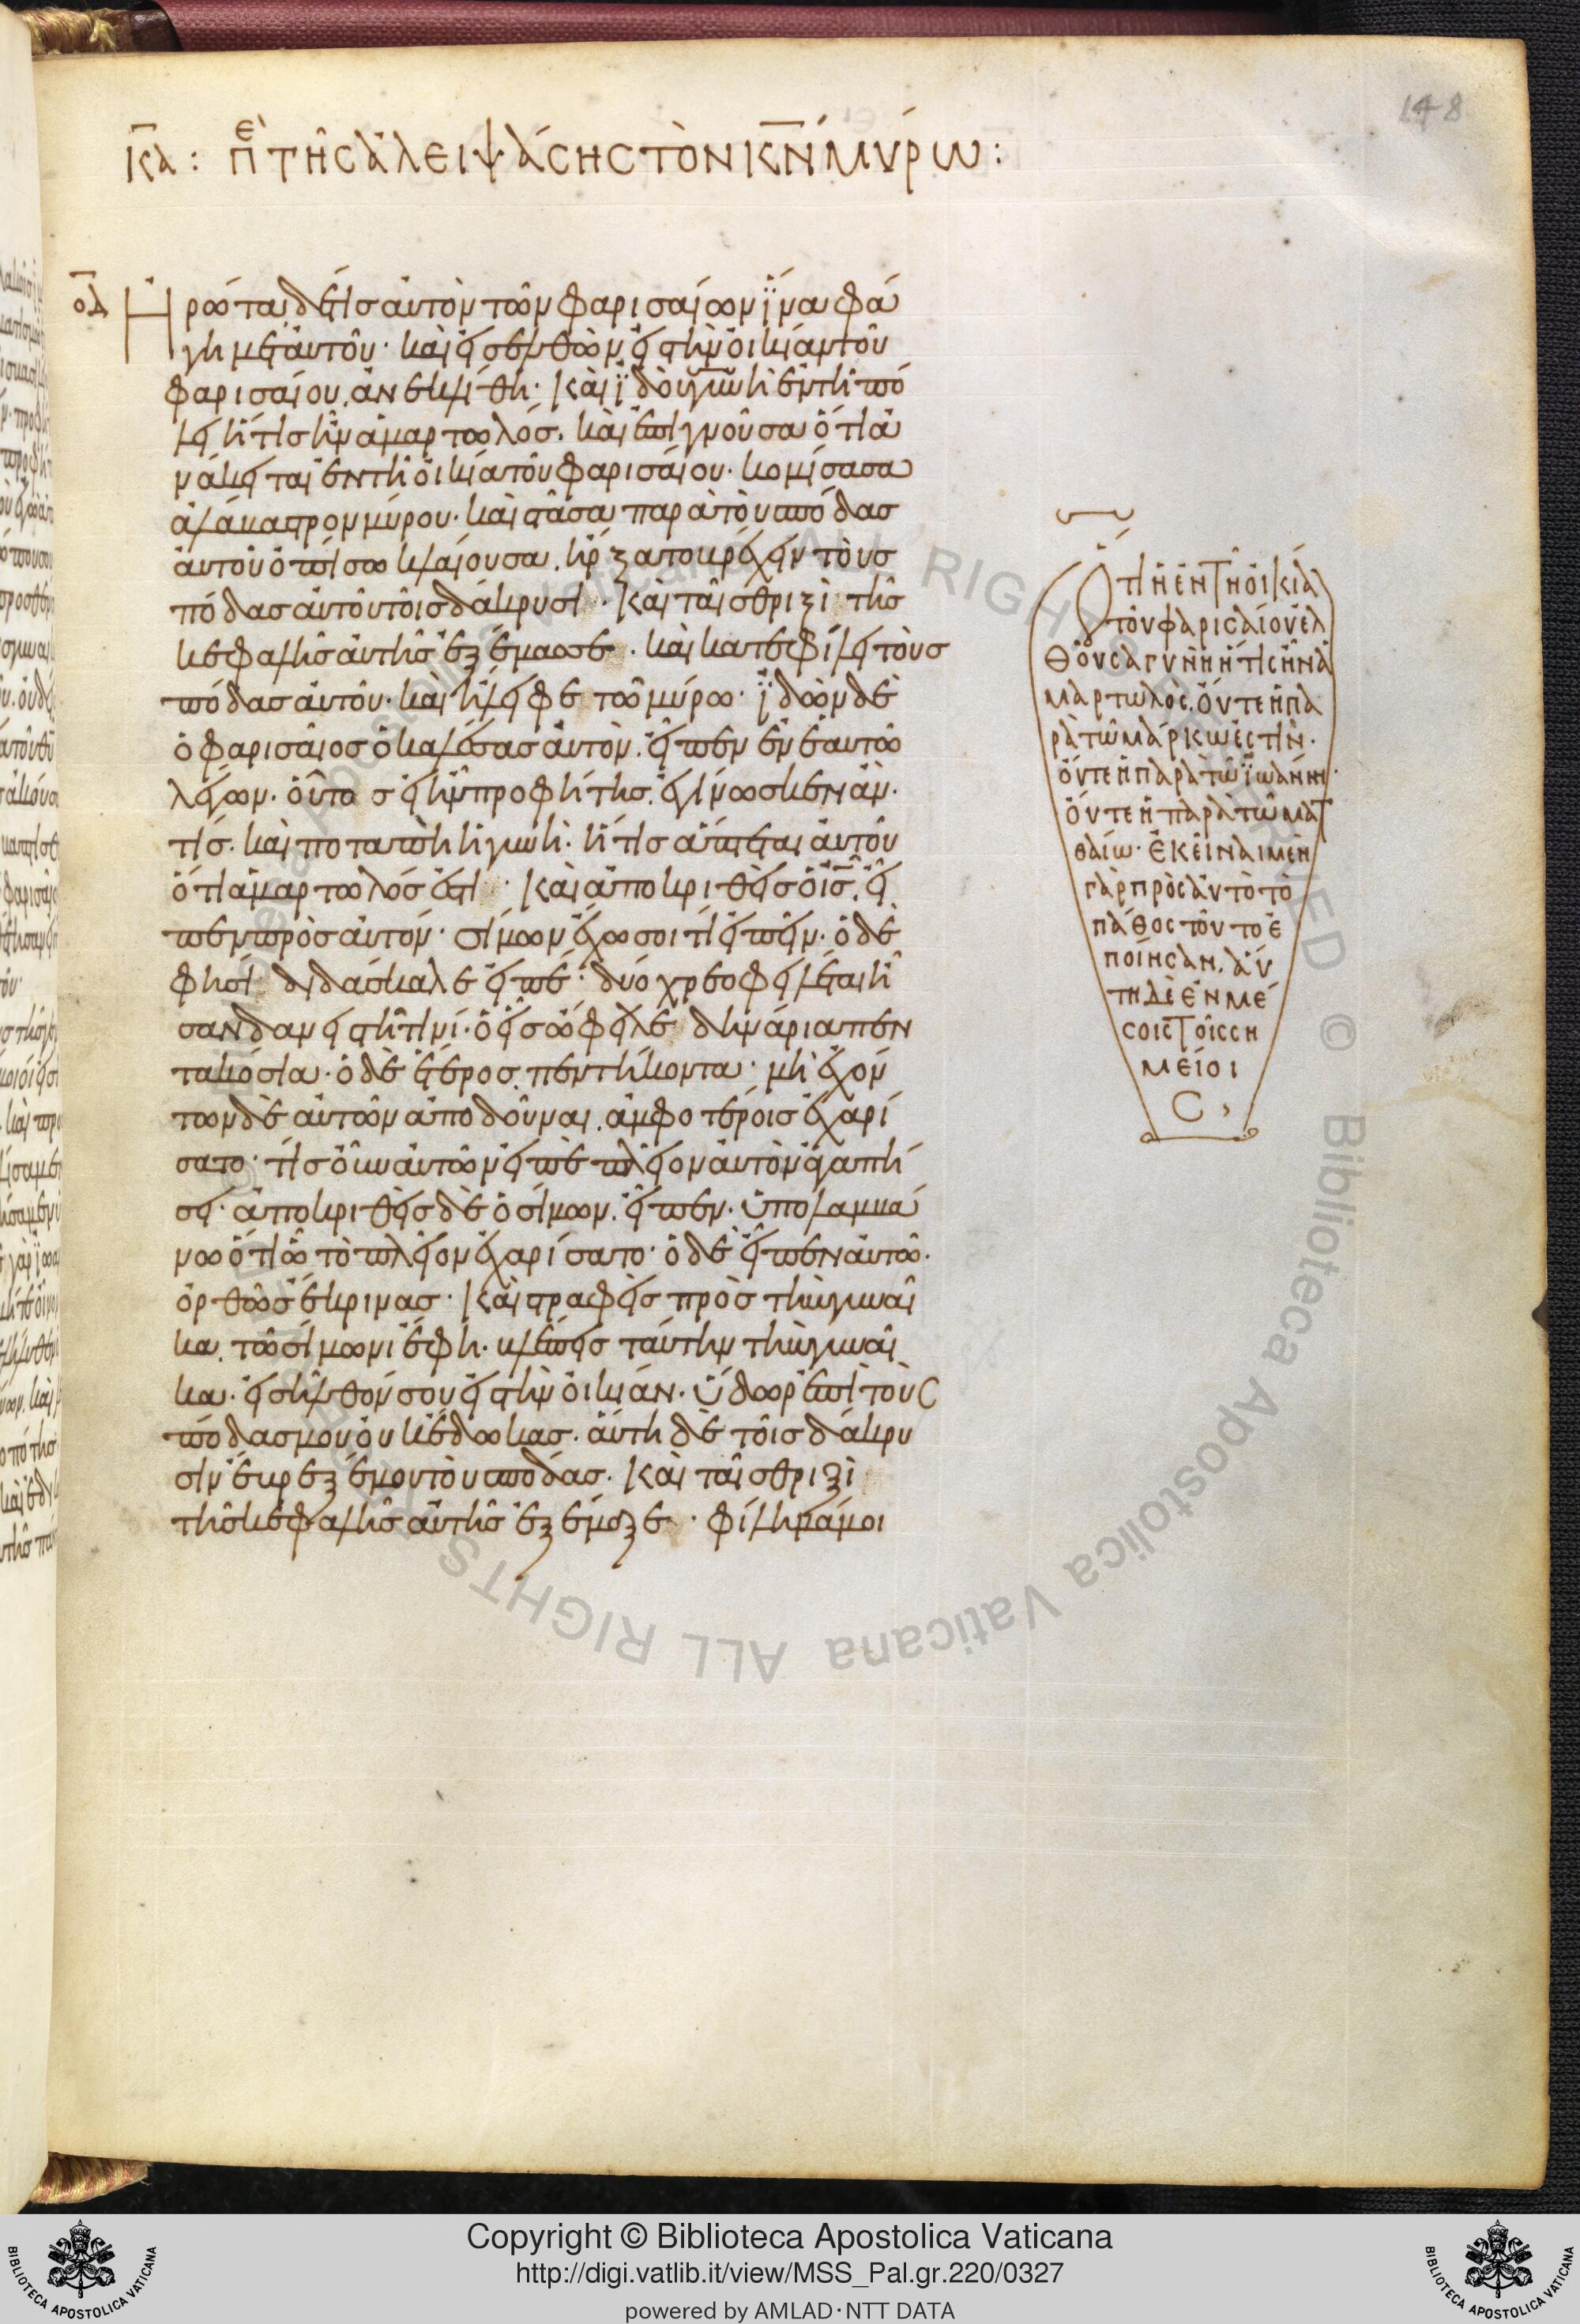 148
κα: πε τῆς ἀλειψάσης τὸν κν μύρω:
οδ Ἠρώτα δέ τις αὐτὸν τῶν φαρισαίων ἵνα φά
γη μετ αὐτοῦ· καὶ εἰσελθὼν εἰς τὴν οἰκίαν τοῦ
φαρισαίου, ἀνεκλίθη· Καὶ ἰδοὺ γυνὴ ἐν τῇ πό
λει ἥτις ἦν ἁμαρτωλός. καὶ ἐπιγνοῦσα ὅτι ἀ
νάκειται ἐν τῇ οἰκία τοῦ φαρισαίου· κομίσασα
ἀλάβαστρον μύρου· καὶ στᾶσα παρὰ τοὺς πόδας
αὐτοῦ ὀπίσω κλαίουσα, ἤρξατο βρέχειν τοὺς
πόδας αὐτοῦ τοῖς δάκρυσι· Καὶ ταῖς θριξὶ τῆς
κεφαλῆς αὐτῆς ἐξέμασσε· καὶ κατεφίλει τοὺς
πόδας αὐτοῦ· καὶ ἤλειφε τῶ μύρω· ἰδὼν δὲ
ὁ φαρισαῖος ὁ καλέσας αὐτὸν, εἶπεν ἐν ἑαυτῶ
λέγων· οὗτος εἰ ἦν προφήτης, ἐγίνωσκεν ἂν·
τίς· καὶ ποταπὴ ἡ γυνὴ· ἥτις ἅπτεται αὐτοῦ
ὅτι ἁμαρτωλός ἐστι· Καὶ ἀποκριθεὶς ὁ ις, εἶ
πεν πρὸς αὐτόν· σίμων ἔχω σοι τί εἰπεῖν· ὁ δέ
φησι· διδάσκαλε εἰπέ· δύο χρεοφειλέται ἦ
σαν δανειστῆ τινί· ὁ εἷς ὤφειλε δηνάρια πεν
τακόσια· ὁ δὲ ἕτερος, πεντήκοντα· μὴ ἐχόν
των δὲ αὐτῶν ἀποδοῦναι, ἀμφοτέροις ἐχαρί
σατο· τίς οὖν αὐτῶν εἰπὲ πλεῖον αὐτὸν ἀγαπή
σει· ἀποκριθεὶς δὲ ὁ σίμων, εἶπεν· ὑπολαμβά
νω ὅτι ὧ τὸ πλεῖον ἐχαρίσατο· ὁ δὲ εἶπεν αὐτῶ·
ὀρθῶς ἔκρινας· Καὶ στραφεὶς πρὸς τὴν γυναῖ
κα, τῶ σίμωνι ἔφη· βλέπεις ταύτην τὴν γυναῖ
κα· εἰσῆλθόν σου εἰς τὴν οἰκίαν· ὕδωρ ἐπὶ τοὺς
πόδας μου οὐκ ἔδωκας· αὕτη δὲ τοῖς δάκρυ
σιν ἔβρεξέ μου τοὺς πόδας· Καὶ ταῖς θριξὶ
τῆς κεφαλῆς αὐτῆς ἐξέμαξε· φίλημά μοι
Ὅτι ἡ ἐν τῆ οἰκία
τοῦ φαρισαίου ἐλ
θοῦσα γυνὴ ἥτις ἦν ἁ
μαρτωλος, οὔτε ἡ πα
ρὰ τῶ μάρκω ἐστὶν·
οὔτε ἡ παρὰ τῶ ἰωάννη·
οὔτε ἡ παρὰ τῶ ματ
θαίω· ἐκεῖναι μὲν
γὰρ πρὸς αὐτὸ τὸ
πάθος τοῦτο ἐ
ποίησαν, αὕ
τη δὲ ἐν μέ
σοις τοῖς ση
μείοι
ς,
Copyright © Biblioteca Apostolica Vaticana
http://digi.vatlib.it/view/MSS_Pal.gr.220/0327
powered by AMLAD·NTT DATA